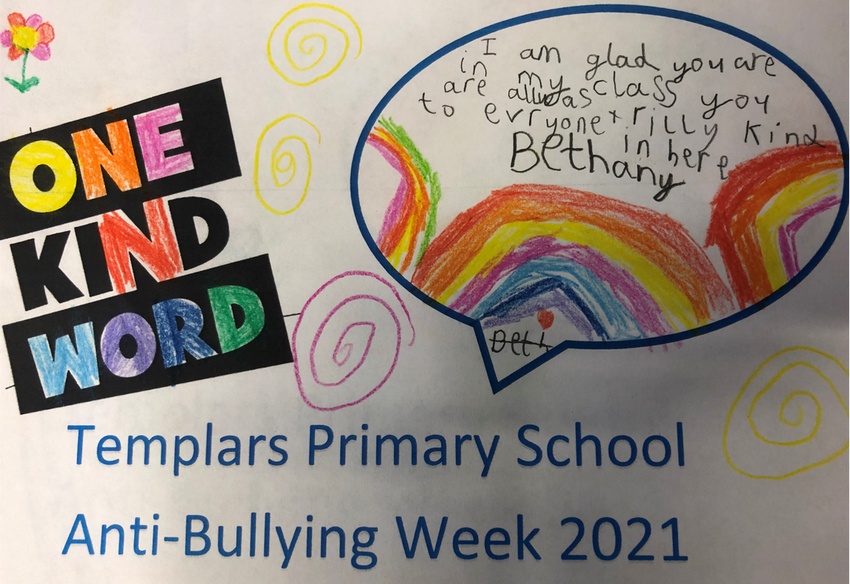 ONE
KIND
WORD
I am glad you are
in my class you
are allways rilly kind
to evryone in here
Bethany
Beth
Templars Primary School
Anti-Bullying Week 2021